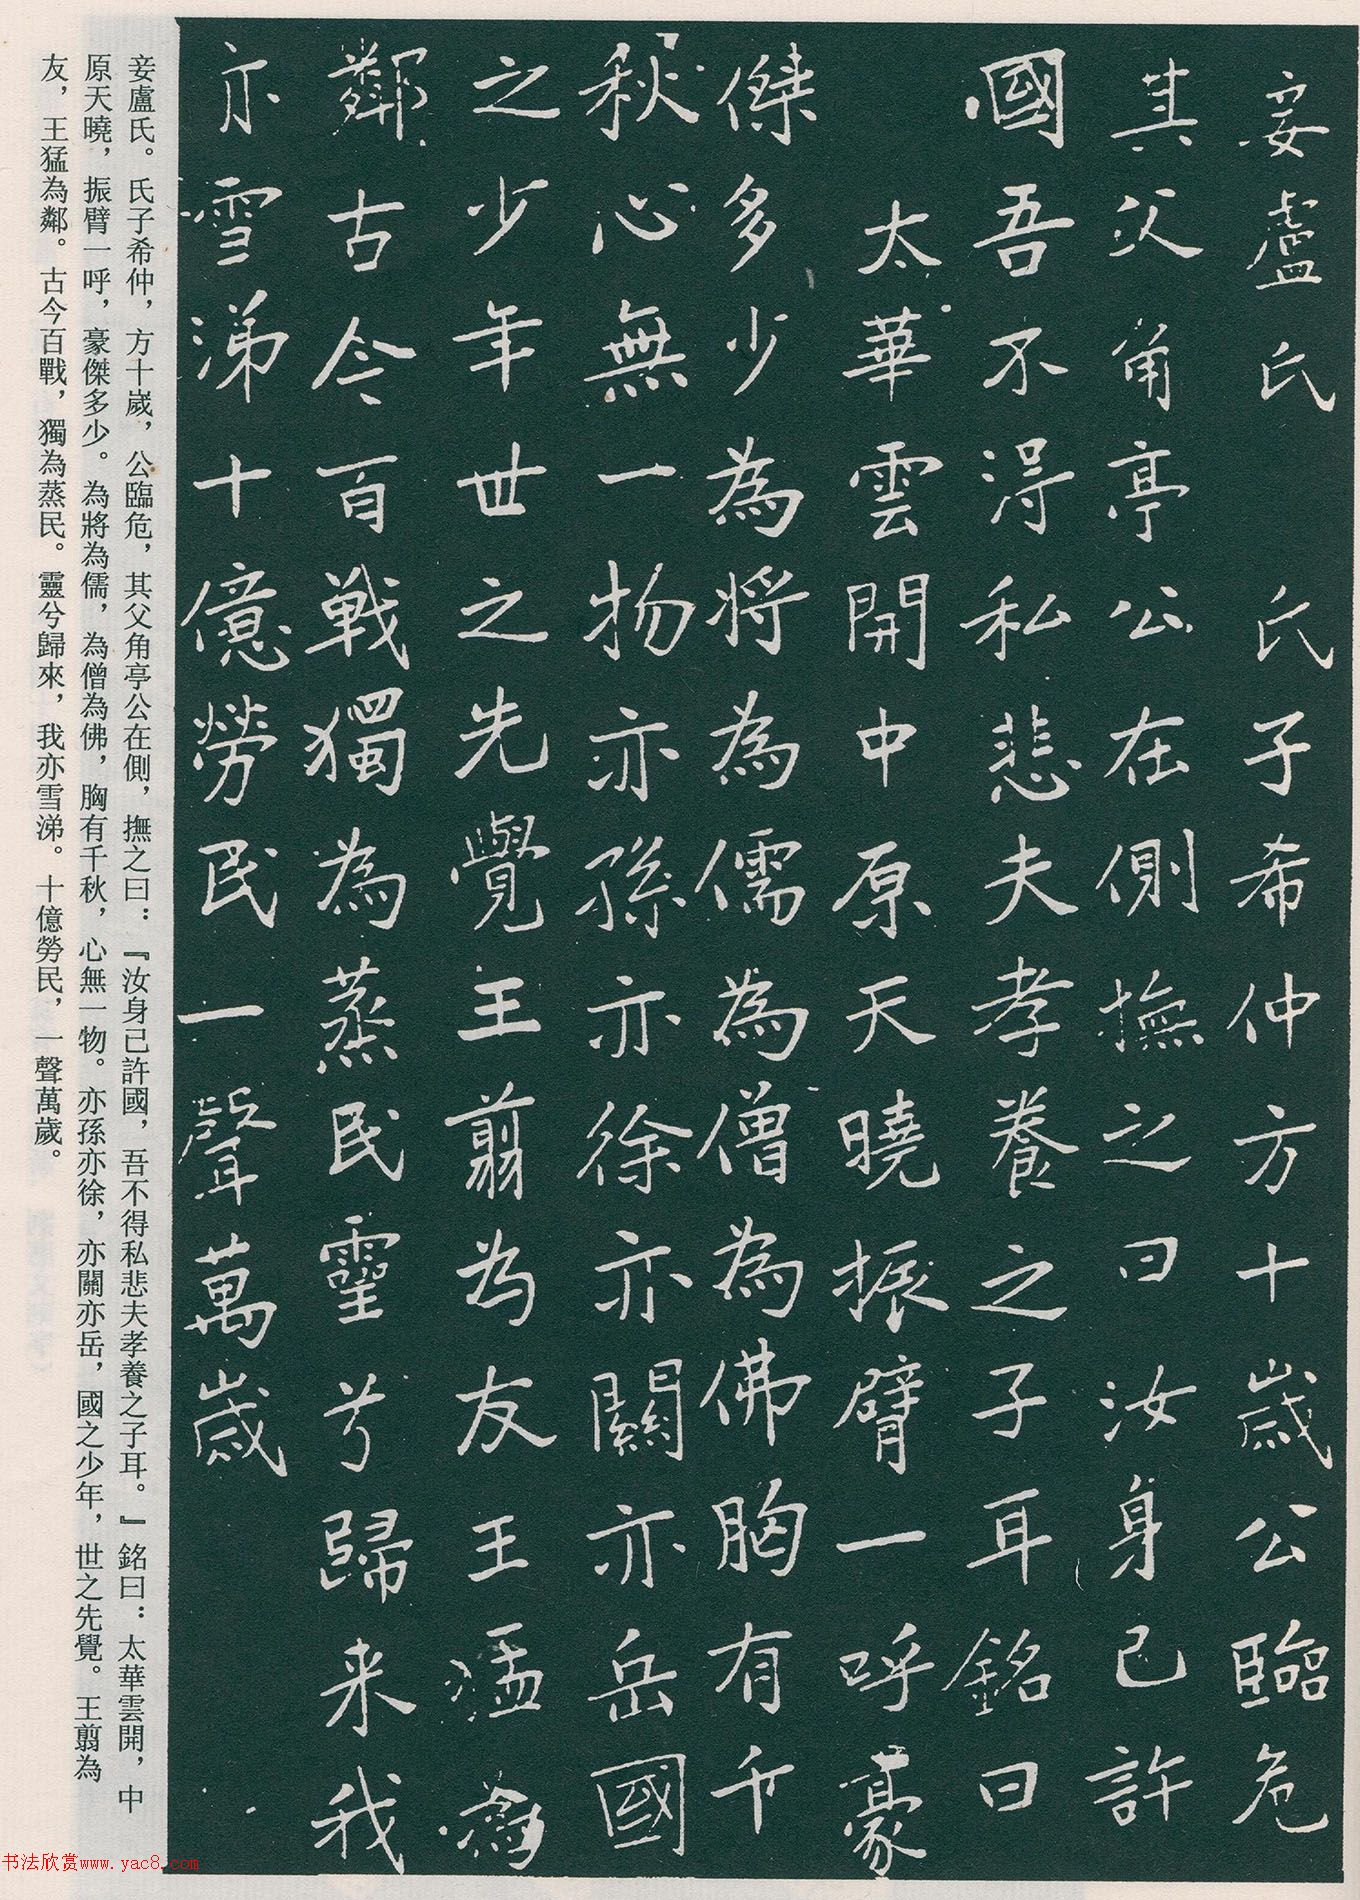 妾盧氏 氏子希仲方十歲公臨危
其父角亭公在側撫之曰汝身已許
國吾不得私悲夫孝養之子耳銘曰
太華雲開中原天曉振臂一呼豪
傑多少為將為儒為僧為佛胸有千
秋心無一物亦孫亦徐亦關亦岳國
之少年世之先覺王翦为友王猛為
鄰古今百戰獨為蒸民靈兮歸来我
亦雪涕十億勞民一聲萬歲
妾盧氏。氏子希仲，方十歲，公臨危，其父角亭公在側，撫之曰：『汝身已許國，吾不得私悲夫孝養之子耳。』銘曰：太華雲開，中
原天曉，振臂一呼，豪傑多少。為將為儒，為僧為佛，胸有千秋，心無一物。亦孫亦徐，亦關亦岳，國之少年，世之先覺。王翦為
友，王猛為鄰。古今百戰，獨為蒸民。靈兮歸來，我亦雪涕。十億勞民，一聲萬歲。
书法欣赏www.yac8.com